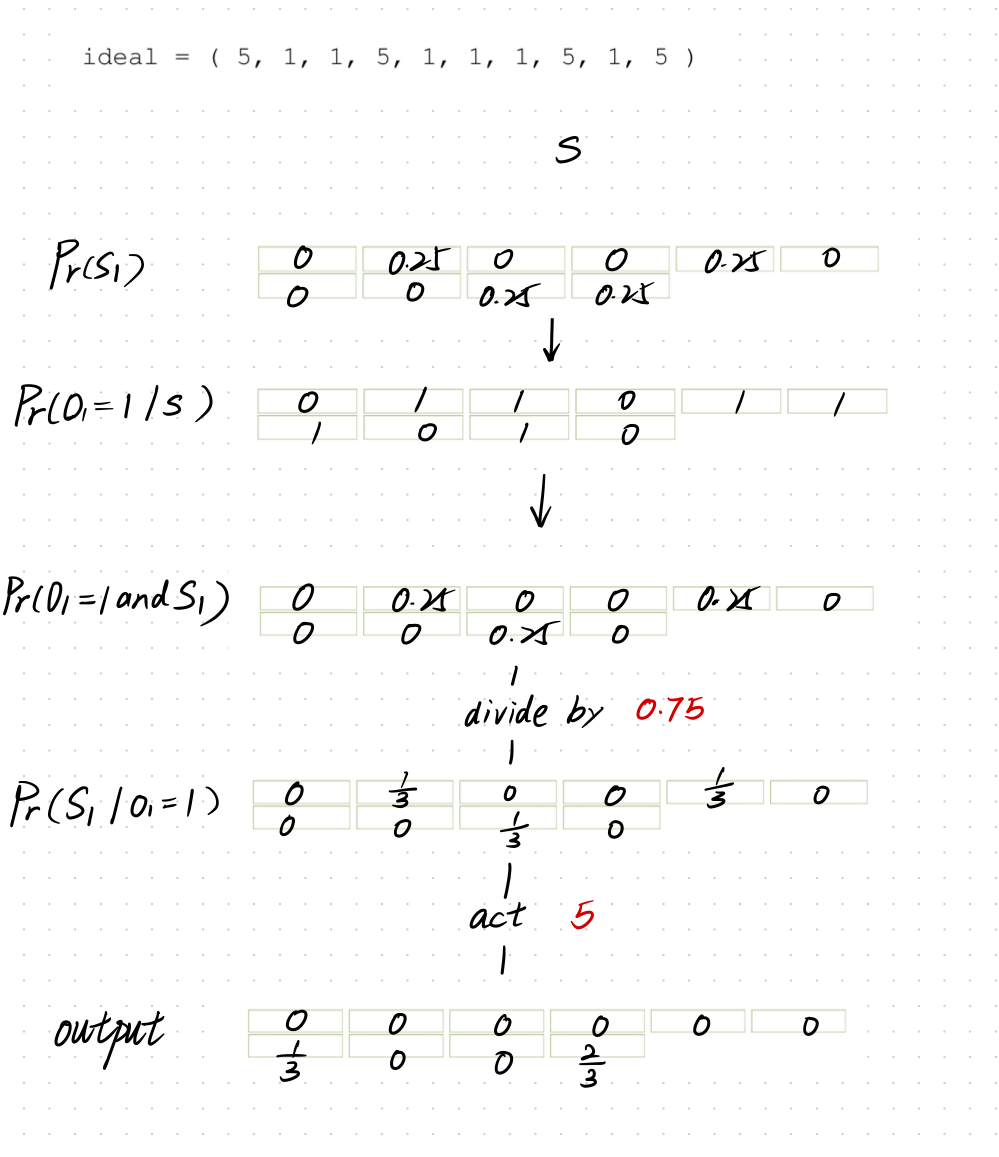 ideal = ( 5, 1, 1, 5, 1, 1, 1, 5, 1, 5 )
S
Pr(S₁) 0 0.25 0 0 0.25 0
0 0 0.25 0.25
↓
Pr(O₁=1/s) 0 1 1 0 1 1
1 0 1 0
↓
Pr(O₁=1 and S₁) 0 0.25 0 0 0.25 0
0 0 0.25 0
divide by 0.75
Pr(S₁/o₁=1) 0 1/3 0 0 1/3 0
0 0 1/3 0
act 5
output 0 0 0 0 0 0
1/3 0 0 2/3